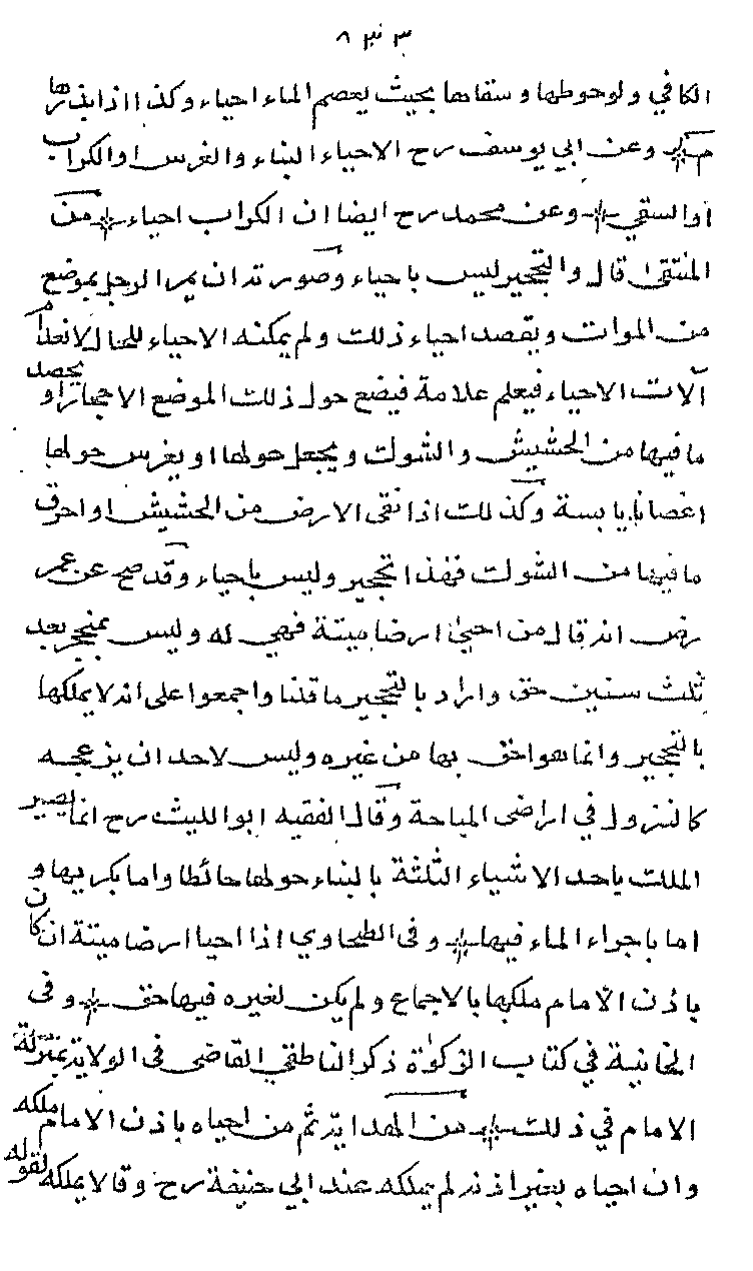 الكافي ولو حوطها وسقاها بحيث يعصم الماء احياء وكذا اذا بذرها
وعن ابي يوسف رح الاحياء البناء والغرس او الكراب
او السقي وعن محمد رح ايضا ان الكراب احياء من
المنتقى قال والتحجير ليس باحياء وصورته ان يمر الرجل بموضع
من الموات ويقصد احياء ذلك ولم يمكنه الاحياء للحال لانعدام
آلات الاحياء فيعلم علامة فيضع حول ذلك الموضع الاحجار او يحصد
ما فيها من الحشيش والشوك ويجعل حولها او يغرس حولها
اغصانا يابسة وكذلك اذا نقى الارض من الحشيش او احرق
ما فيها من الشوك فهذا تحجير وليس باحياء وقد صح عن عمر
رض انه قال من احيى ارضا ميتة فهي له وليس بمتحجر بعد
ثلث سنين حق واراد بالتحجير ما قلنا واجمعوا على انه لا يملكها
بالتحجير وانما هو احق بها من غيره وليس لاحد ان يزعجه
كالنزول في اراضى المباحة وقال الفقيه ابو الليث رح انما يصير
الملك باحد الاشياء الثلثة بالبناء حولها حائطا واما بكريها و
اما باجراء الماء فيها وفى الطحاوي اذا احيا ارضا ميتة ان كان
باذن الامام ملكها بالاجماع ولم يكن لغيره فيها حق وفى
الخانية في كتاب الزكوة ذكر الناطقي القاضى فى الولاية بمنزلة
الامام في ذلك من الهداية ثم من احياه باذن الامام ملكه
وان احياه بغير اذنه لم يملكه عند ابي حنيفة رح وقالا يملكه لقوله